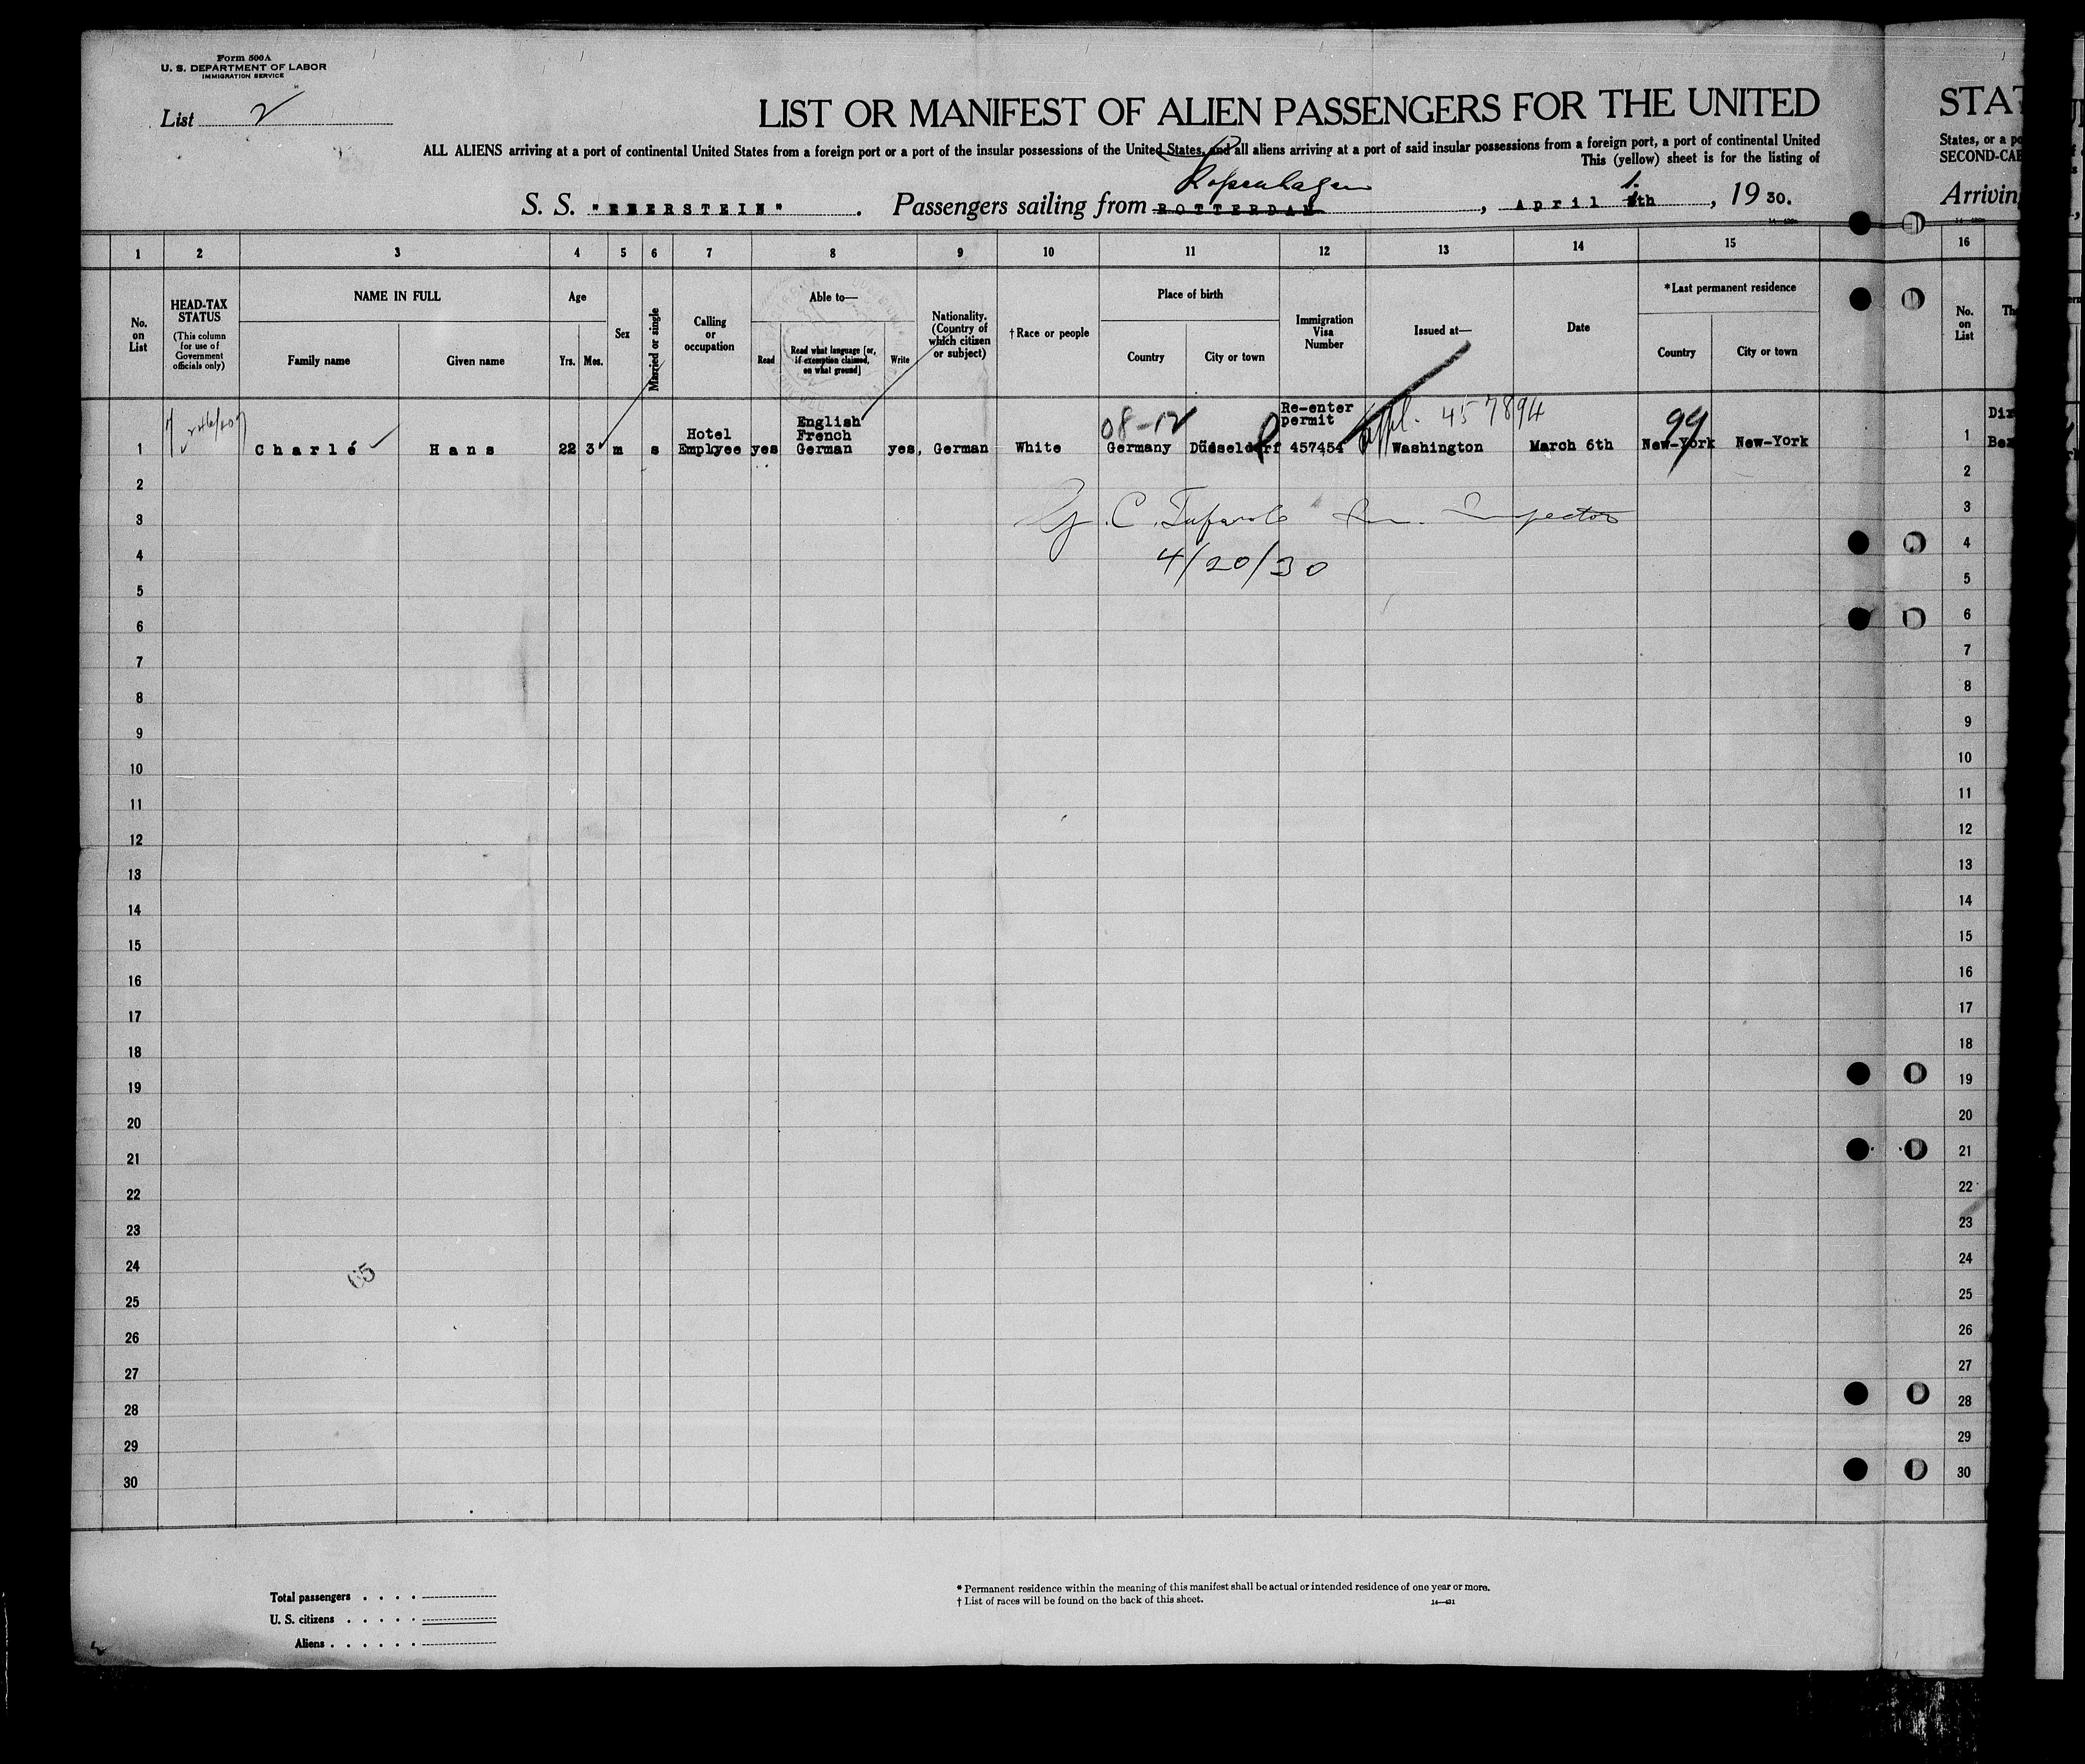 Form 500A
U. S. DEPARTMENT OF LABOR
IMMIGRATION SERVICE
List 2
LIST OR MANIFEST OF ALIEN PASSENGERS FOR THE UNITED
ALL ALIENS arriving at a port of continental United States from a foreign port or a port of the insular possessions of the United States, and all aliens arriving at a port of said insular possessions from a foreign port, a port of continental United
This (yellow) sheet is for the listing of
Kopenhagen
S. S. "EBERSTEIN" . Passengers sailing from ROTTERDAM , April th , 19 30.
STAT
States, or a po
SECOND-CAB
Arriving
1 2 3 4 5 6 7 8 9 10 11 12 13 14 15 16
No. on List
HEAD-TAX STATUS
(This column for use of Government officials only)
NAME IN FULL
Family name Given name
Age
Yrs. Mos.
Sex
Married or single
Calling or occupation
Able to—
Read Read what language [or, if exemption claimed, on what ground] Write
Nationality. (Country of which citizen or subject)
†Race or people
Place of birth
Country City or town
Immigration Visa Number
Issued at—
Date
*Last permanent residence
Country City or town
No. on List
Th
08-12
Appl. 457894
99
1 Charlé Hans 22 3 m s Hotel Employee yes English French German yes, German White Germany Düsseldorf Re-enter permit 457454 Washington March 6th New-York New-York 1
2 2
3 Inspector 3
4 4/20/30 4
5 5
6 6
7 7
8 8
9 9
10 10
11 11
12 12
13 13
14 14
15 15
16 16
17 17
18 18
19 19
20 20
21 21
22 22
23 23
24 24
65
25 25
26 26
27 27
28 28
29 29
30 30
Total passengers . . . .
U. S. citizens . . . . .
Aliens . . . . . .
* Permanent residence within the meaning of this manifest shall be actual or intended residence of one year or more.
† List of races will be found on the back of this sheet.
14—431